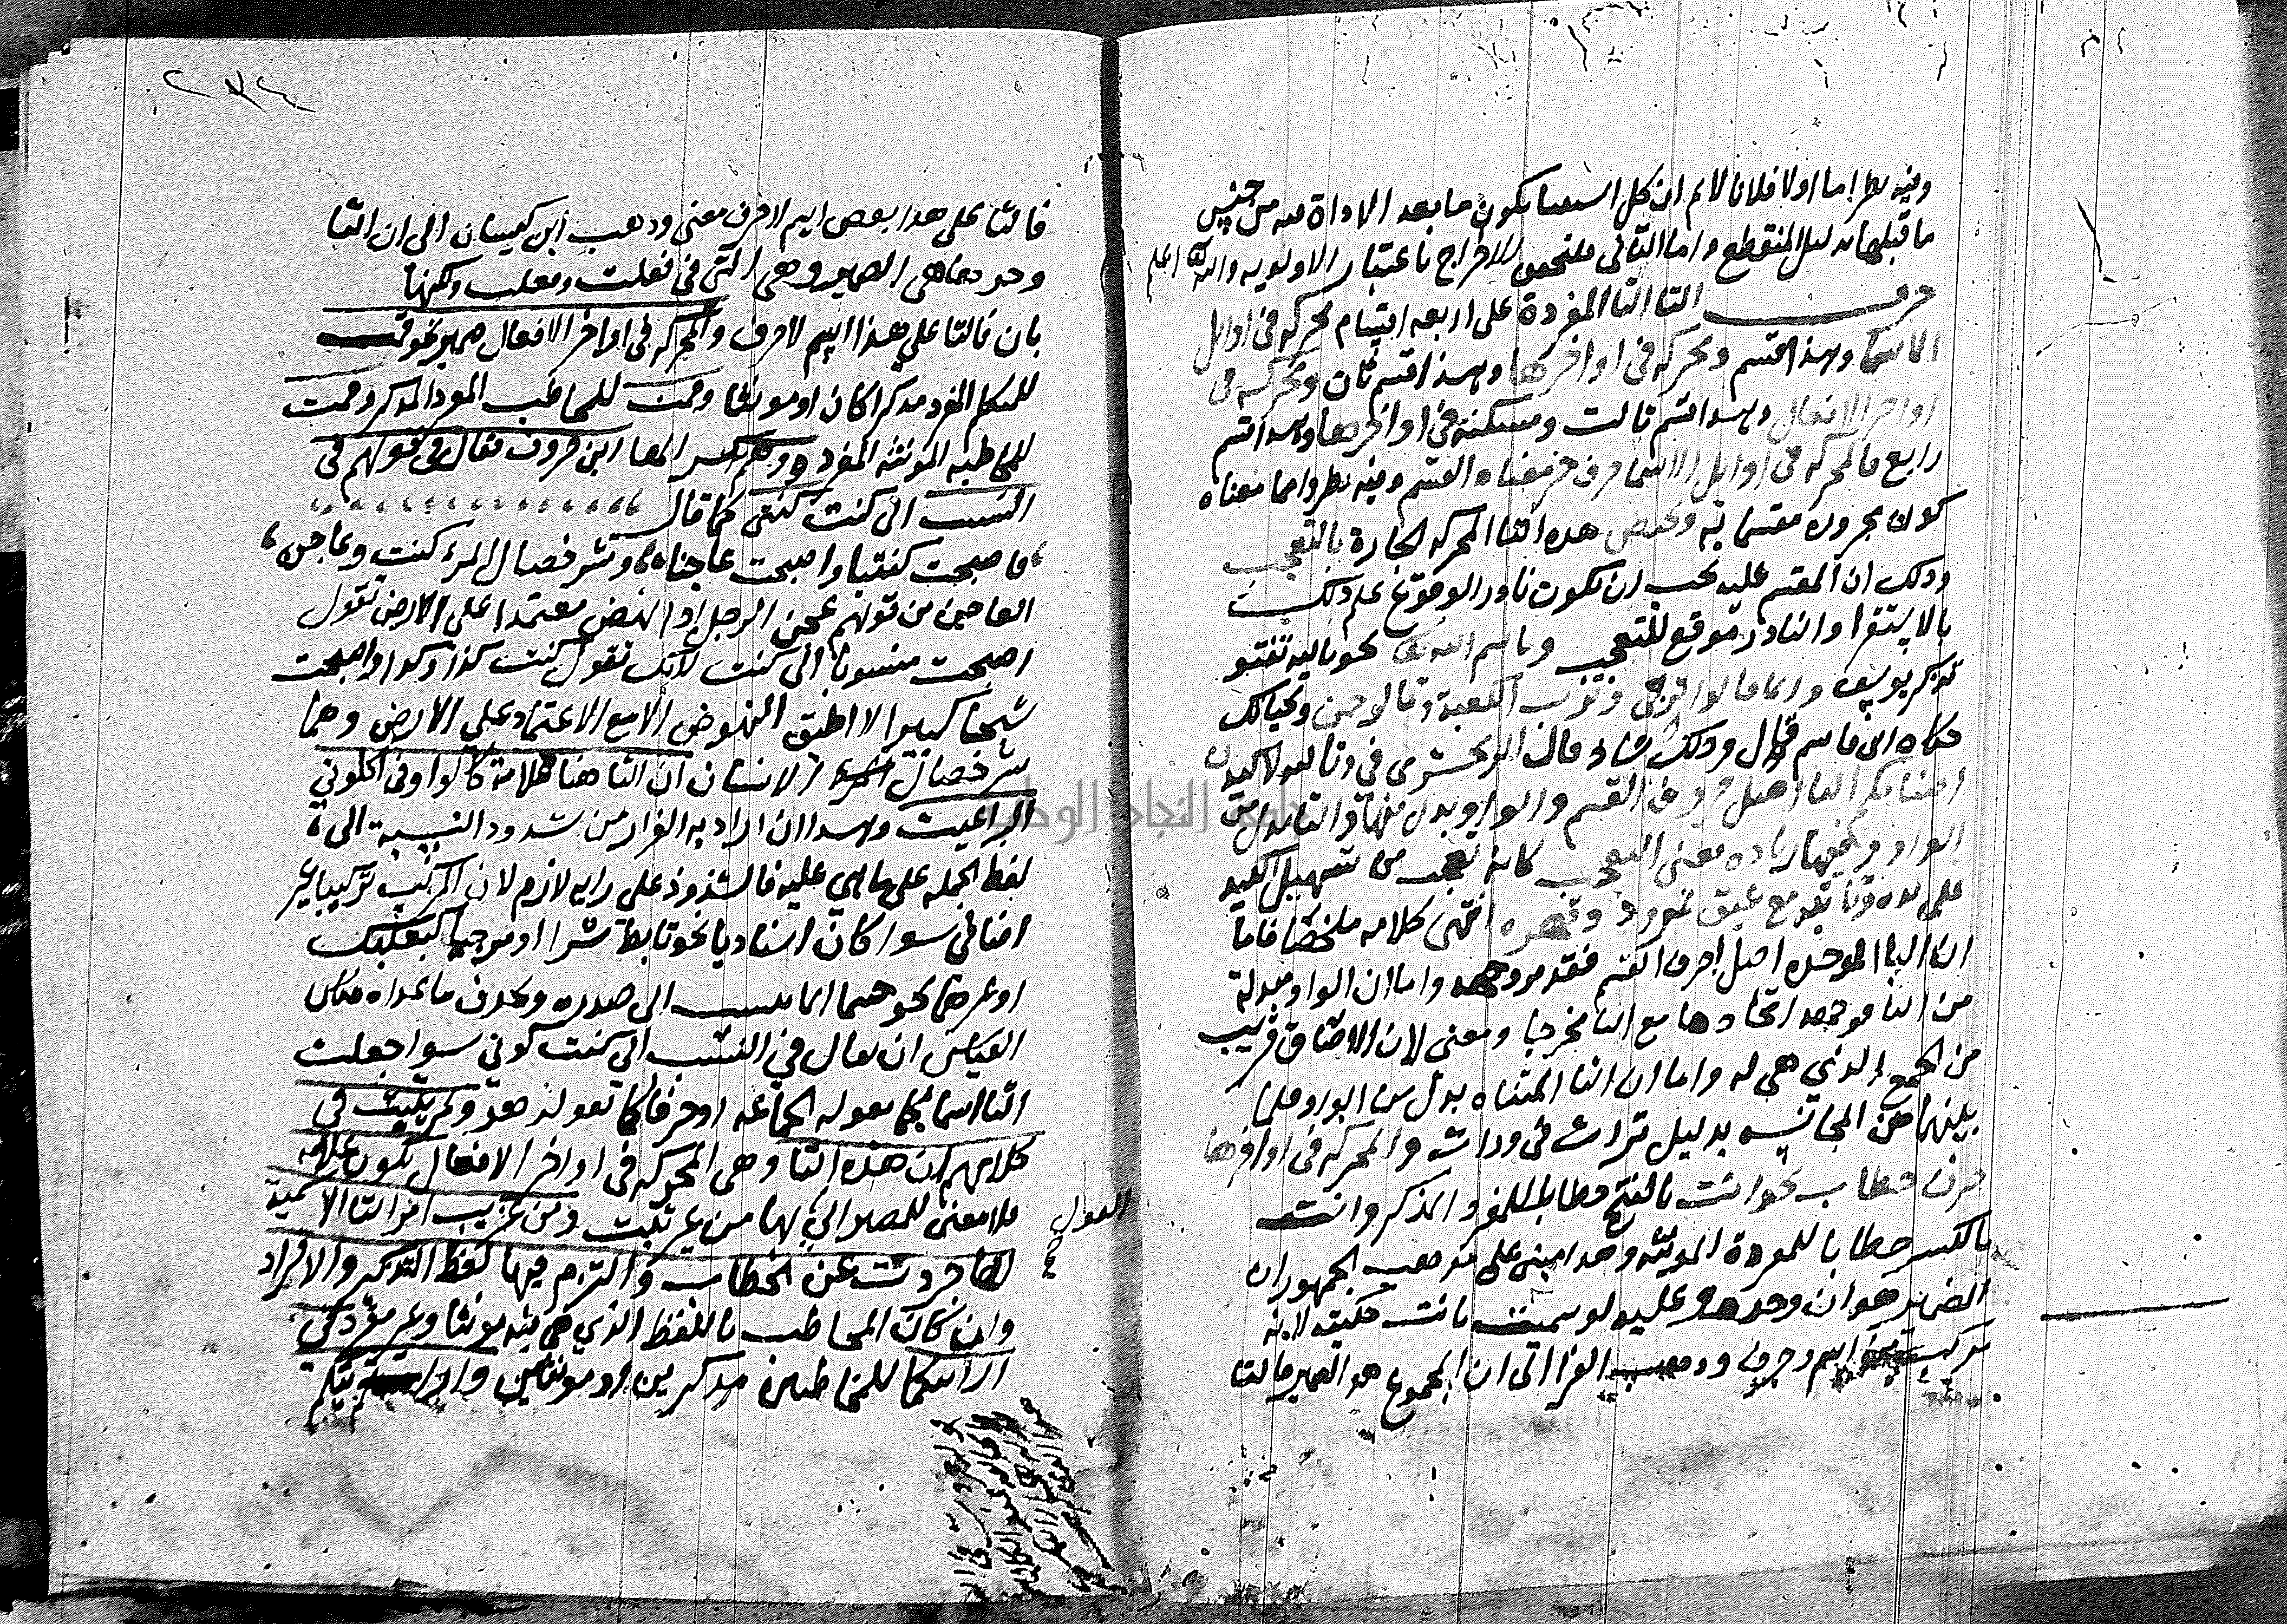 وفيه نظر اما اولا فلانا لا نم ان كل استثنا يكون ما بعد الاداة فيه من جنس
ما قبلها بدليل المنقطع واما الثاني فلتحقق الاخراج باعتبار الاولويه والله اعلم
حرف التا التا المفردة على اربعه اقسام محركه في اوايل
الاسما وهذا قسم ومحركه في اواخرها وهذا قسم ثان ومحركه في
اواخر الافعال وهذا قسم ثالث ومسكنه في اواخرها وهذا قسم
رابع فالمحركه في اوايل الاسما حرف جر معناه القسم وفيه نظر وانما معناه
كون مجروره مقسما به وتختص هذه التا المحركه الجارة بالتعجب
وذلك ان المقسم عليه يجب ان يكون نادر الوقوع علم ذلك
بالاستقرا والنادر موقع للتعجب وباسم الله تعالى نحو تالله تفتو
تذكر يوسف وربما قالوا تربي وترب الكعبة وتالرحمن وتحياتك
حكاه ابن قاسم قال وذلك شاذ قال الزمخشري في وتالله لاكيدن
اصنامكم البا اصل حروف القسم والواو بدل منها والتا بدل من
الواو وفيها زياده معنى التعجب كانه تعجب من تسهيل الكيد
على يده وتاتيه مع عتو نمرود وقهره انتهى كلامه ملخصا فاما
ان البا الموحده اصل احرف القسم فقد مر وجهه واما ان الواو مبدلة
من البا فوجهه اتحادها مع البا مخرجا ومعنى لان الالصاق قريب
من الجمع الذي هي له واما ان التا المثناه بدل من الواو فلما
بينهما من المجانسه بدليل تراث في وراث والمحركه في اواخرها
حرف خطاب نحو انت بالفتح خطابا للمفرد المذكر وانت
بالكسر خطابا للمفردة المونثه وهذا مبني على مذهب الجمهور ان
الضمير هو ان وحدها وعليه لو سميت بانت حكيته لانه
مركب من اسم وحرف وذهب الفرا الى ان المجموع هو الضمير فالتا
٢٧٤
فالتا على هذا بعض اسم لا حرف معنى وذهب ابن كيسان الى ان التا
وحدها هي الضمير وهي التي في فعلت وفعلت ولكنها
بان فالتا على هذا اسم لا حرف والمحركه في اواخر الافعال ضمير نحو قمت
للمتكلم المفرد مذكرا كان او مونثا وقمت للمخاطب المفرد المذكر وقمت
للمخاطبه المونثه المفرده ووهم ابن خروف فقال في قولهم في
النسب الى كنت كنتي كما قال
فاصبحت كنتيا واصبحت عاجنا وشر خصال المرء كنت وعاجن
العاجن من قولهم عجن الرجل اذا نهض معتمدا على الارض تقول
اصبحت منسوبا الى كنت لانك تقول كنت كذا وكذا واصبحت
شيخا كبيرا لا اطيق النهوض الا مع الاعتماد على الارض وهما
شر خصال الانسان ان التا هنا علامة كالواو في اكلوني
البراغيث وهذا ان اراد به الفرار من شذوذ النسبة الى
لفظ الجمله على ما هي عليه فالشذوذ على رايه لازم لان المركب تركيبا غير
اضافي سوا كان اسناديا نحو تابط شرا او مزجيا كبعلبك
او غيرهما نحو حيثما انما ينسب الى صدره ويحذف ما عداه فكان
القياس ان يقال في النسب الى كنت كوني سوا جعلت
التا اسما كما يقوله الجماعه او حرفا كما يقوله هو ولم يثبت في
كلامهم ان هذه التا وهي المحركه في اواخر الافعال تكون علامه
فلا معنى للمصير الى القول بها من غير ثبت ومن غريب امر التا الاسمية
انها جردت عن الخطاب والتزم فيها لفظ التذكير والافراد
وان كان المخاطب باللفظ الذي هي فيه مونثا وغير مفرد في
ارايتكما للمخاطبين مذكرين او مونثين وارايتكم